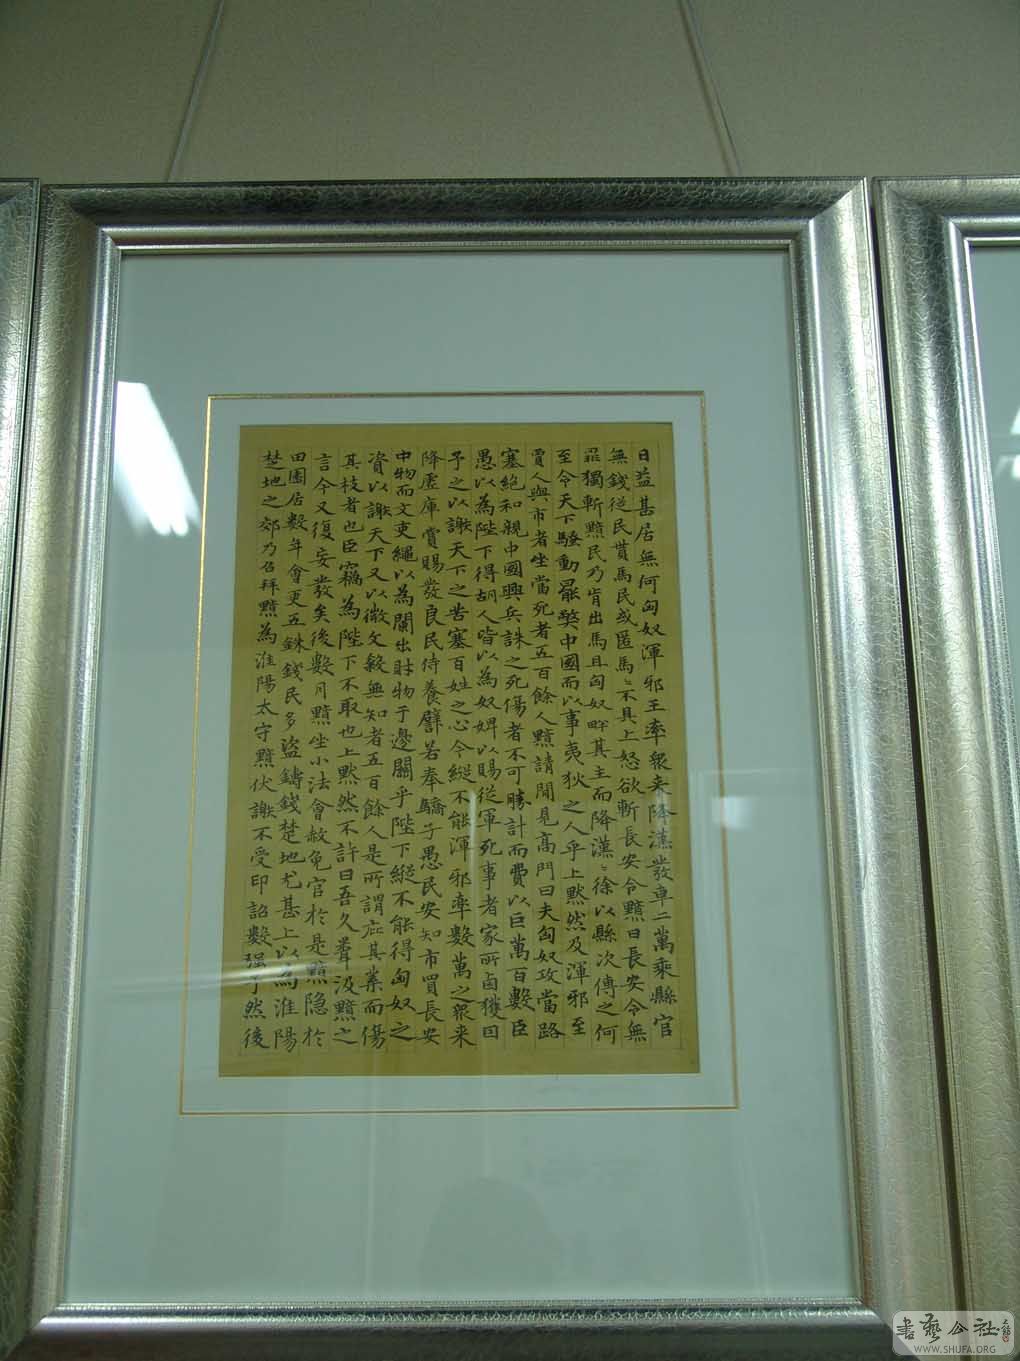 日益甚居無何匈奴渾邪王率衆来降漢發車二萬乘縣官
無錢從民貰馬民或匿馬〻不具上怒欲斬長安令黯曰長安令無
罪獨斬黯民乃肯出馬且匈奴畔其主而降漢〻徐以縣次傳之何
至令天下騷動罷弊中國而以事夷狄之人乎上黙然及渾邪至
賈人與市者坐當死者五百餘人黯請閒見高門曰夫匈奴攻當路
塞絶和親中國興兵誅之死傷者不可勝計而費以巨萬百數臣
愚以為陛下得胡人皆以為奴婢以賜從軍死事者家所鹵獲因
予之以謝天下之苦塞百姓之心今縱不能渾邪率數萬之衆来
降虛庫賞賜發良民侍養譬若奉驕子愚民安知市買長安
中物而文吏繩以為闌出財物于邊關乎陛下縱不能得匈奴之
資以謝天下又以微文殺無知者五百餘人是所謂庇其葉而傷
其枝者也臣竊為陛下不取也上黙然不許曰吾久不聞汲黯之
言今又復妄發矣後數月黯坐小法會赦免官於是黯隐於
田園居數年會更五銖錢民多盜鑄錢楚地尤甚上以為淮陽
楚地之郊乃召拜黯為淮陽太守黯伏謝不受印詔數强予然後
書藝公社
WWW.SHUFA.ORG